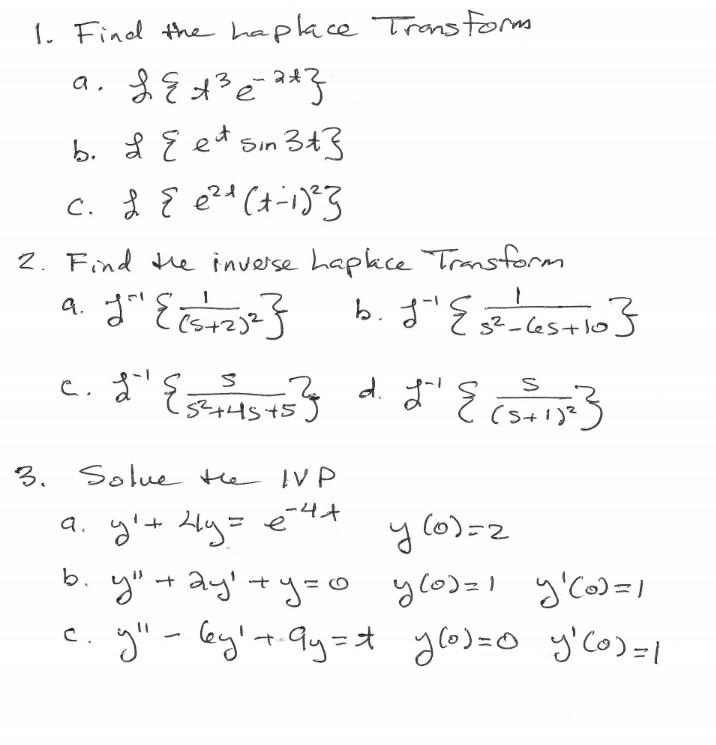 1. Find the Laplace Transform
a. ℒ{t³e⁻²ᵗ}
b. ℒ{eᵗ sin 3t}
c. ℒ{e²ᵗ(t-1)²}
2. Find the inverse Laplace Transform
a. ℒ⁻¹{1/(s+2)²} b. ℒ⁻¹{1/(s²-6s+10)}
c. ℒ⁻¹{s/(s²+4s+5)} d. ℒ⁻¹{s/(s+1)²}
3. Solve the IVP
a. y'+4y=e⁻⁴ᵗ y(0)=2
b. y"+2y'+y=0 y(0)=1 y'(0)=1
c. y"-6y'+9y=t y(0)=0 y'(0)=1